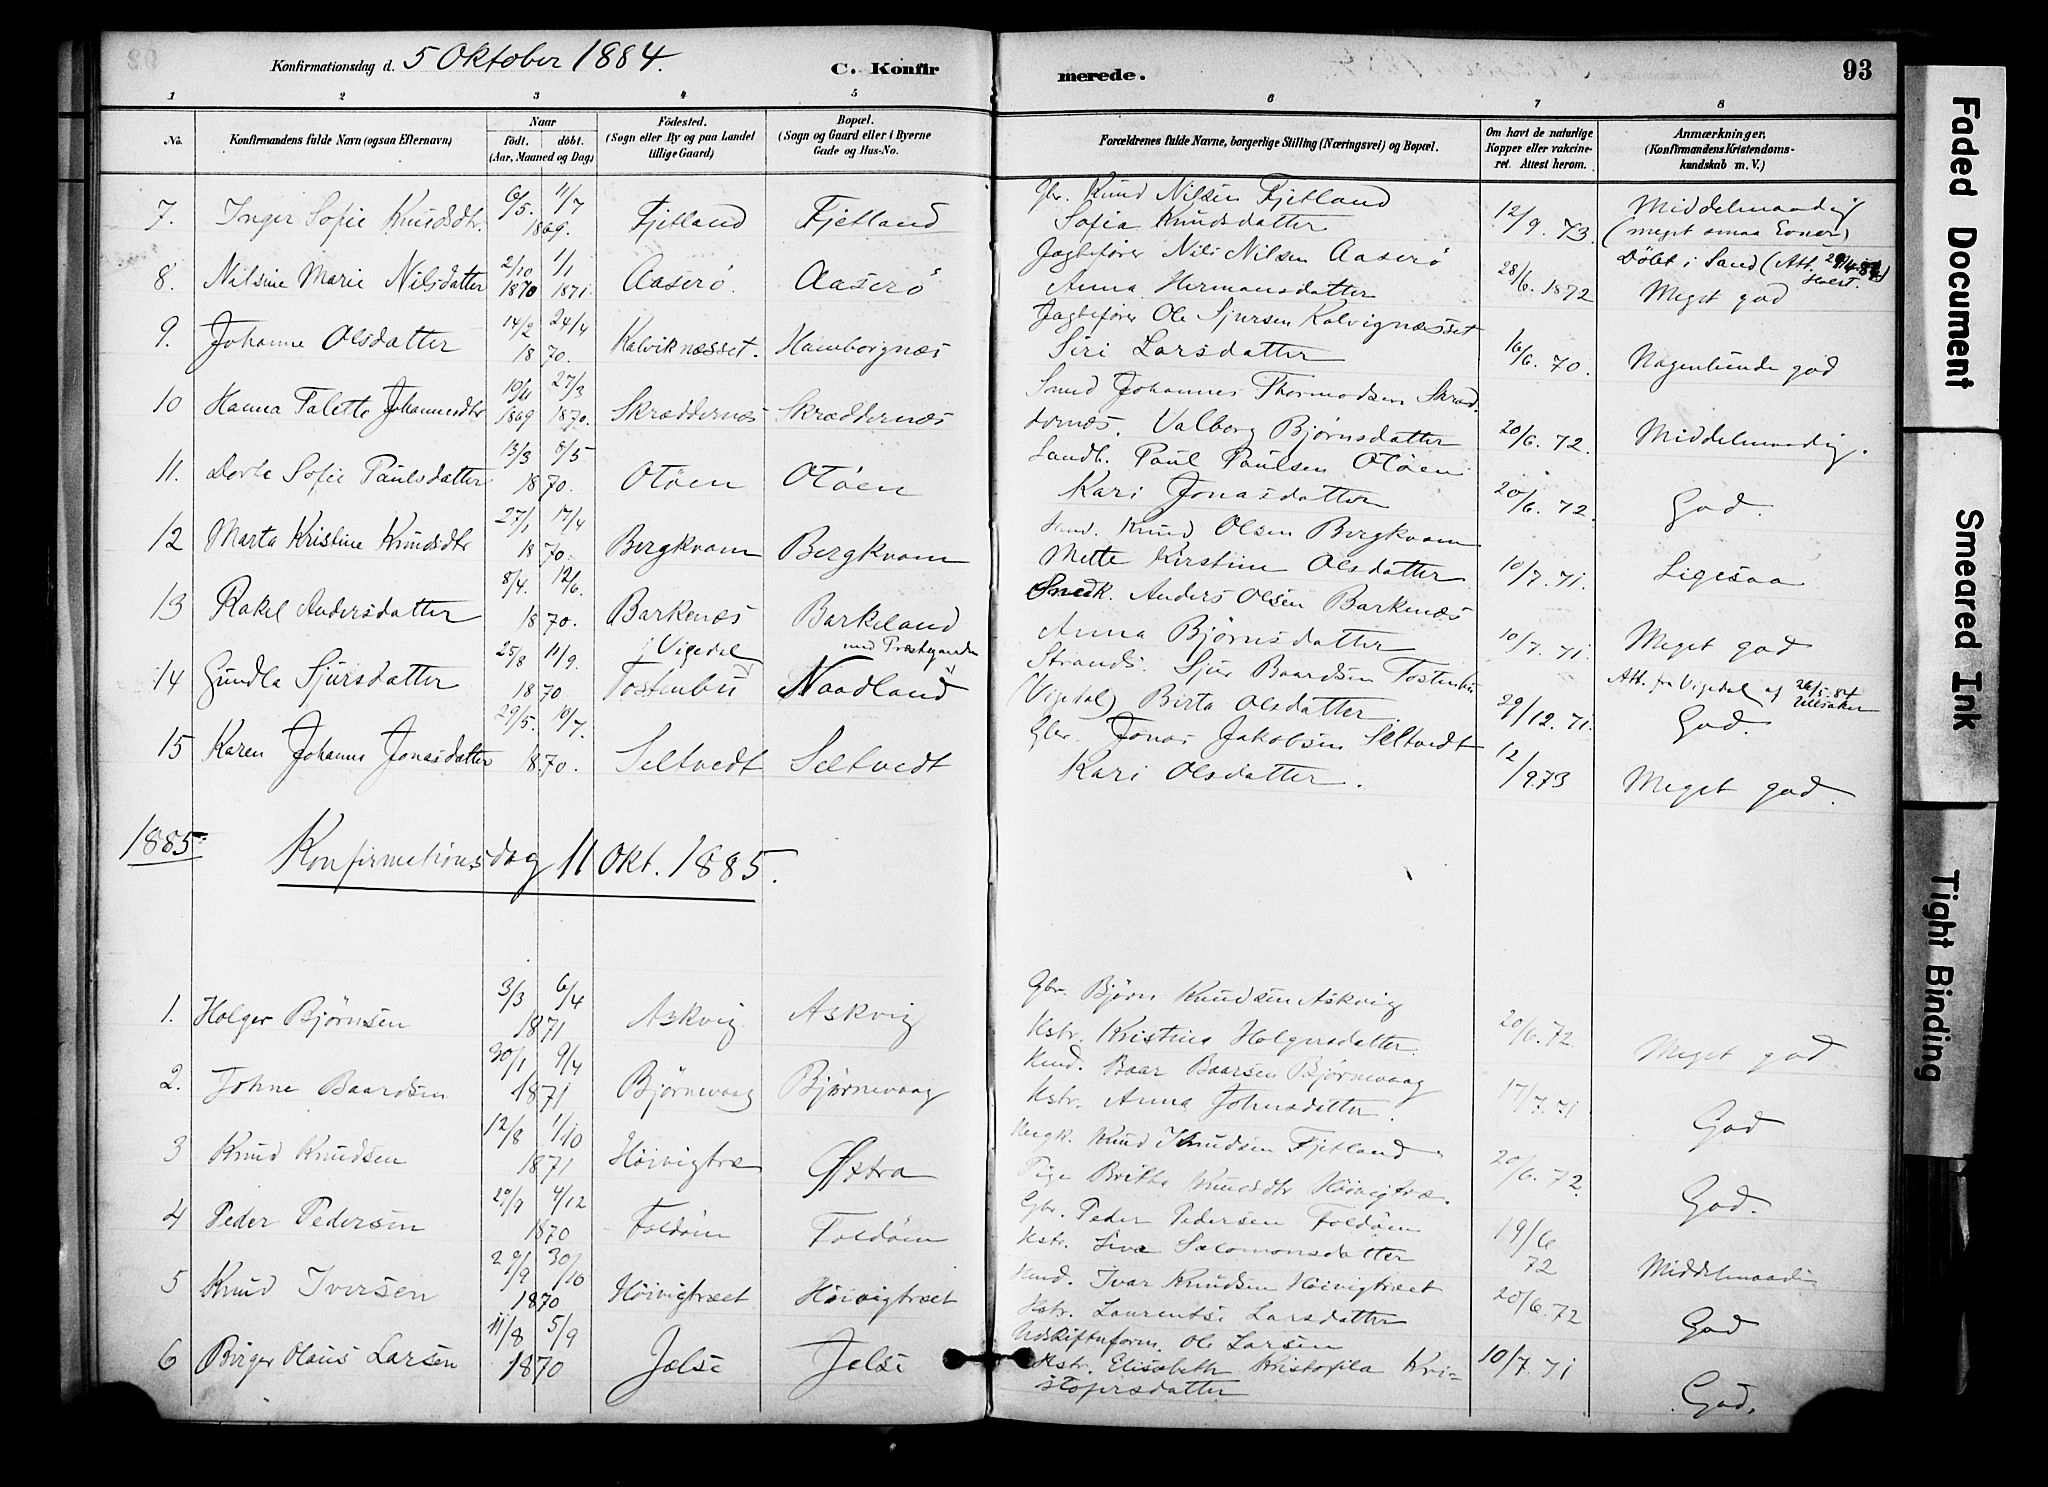 Konfirmationsdag d. 5 Oktober 1884.
C. Konfir
merede.
93
1 2 3 4 5 6 7 8
No.
Konfirmandens fulde Navn (ogsaa Efternavn)
Naar
født. døbt.
(Aar, Maaned og Dag)
Fødested.
(Sogn eller By og paa Landet
tillige Gaard)
Bopæl.
(Sogn og Gaard eller i Byerne
Gade og Hus-No.
Forældrenes fulde Navne, borgerlige Stilling (Næringsvei) og Bopæl.
Om havt de naturlige
Kopper eller vakcine-
ret. Attest herom.
Anmærkninger.
(Konfirmandens Kristendoms-
kundskab m. V.)
7. Inger Sofie Knudsdtr. 6/5. 11/7 1869. Fjetland Fjetland
Gbr. Knud Nilsen Fjetland
Sofia Knudsdatter
12/9. 73.
Middelmaadig
(meget smaa Evner)
8. Nilsine Marie Nilsdatter 2/10 1870 1/1 1871. Aaserö Aaserö
Jagtefører Nils Nilsen Aaserö
Anna Hermansdatter
28/6. 1872
Döbt i Sand (Att.
Meget god
9. Johanne Olsdatter 14/2 24/4 1870. Kalviknæsset. Hamborgnæs
Jagtefører Ole Sjursen Kalvignæsset
Siri Larsdatter
16/6. 70.
Nogenlunde god
10 Hanna Talette Johannesdtr 10/11 1869 27/3 1870. Skræddernæs Skræddernæs
Smed Johannes Thormodsen Skræd-
dernæs. Valborg Bjørnsdatter
20/6. 72.
Middelmaadig.
11. Dorte Sofie Paulsdatter 13/3 8/5 1870. Otöen Otöen
Landh. Paul Paulsen Otöen
Kari Jonasdatter
20/6. 72.
God.
12 Marta Kristine Knudsdtr 27/1 17/4 1870. Bergkvam Bergkvam
Knud Olsen Bergkvam
Mette Kirstine Olsdatter
10/7. 71.
Ligesaa
13 Rakel Andersdatter 8/4. 12/6. 1870. Barkenæs Barkeland
Snedk. Anders Olsen Barkenæs
Anna Bjørnsdatter
10/7. 71.
Meget god
14 Gundla Sjursdatter 25/8 11/9. 1870 i Vigedal Tostenbu
ned Præstegaarden
Naadland
Strands. Sjur Baardsen Tostenbu
(Vigedal) Birta Olsdatter
29/12. 71.
Att. fra Vigedal af 26/5. 84
God.
15 Karen Johanna Jonasdatter 29/5. 10/7. 1870. Seltvedt Seltvedt
Gbr. Jonas Jakobsen Seltvedt
Kari Olsdatter.
12/9.73
Meget god.
1885. Konfirmationsdag 11 Okt. 1885.
1. Holger Bjørnsen 3/3 6/4 1871 Askvig Askvig
Gbr. Bjørn Knudsen Askvig
Kstr. Kristina Holgersdatter.
20/6. 72
Meget god.
2. Johne Baardsen 30/1 9/4 1871 Bjørnevaag Bjørnevaag
Hmd. Baar Baarsen Bjørnevaag
Kstr. Anna Johnsdatter.
17/7. 71
God
3 Knud Knudsen 12/8 1/10 1871 Höivigtræ Østra
Ungk. Knud Knudsen Fjetland
Pige Britha Knudsdtr Höivigtræ.
20/6. 72.
God.
4 Peder Pedersen 29/9 4/12 1870 Foldöen Foldöen
Gbr. Peder Pedersen Foldöen
Kstr. Siva Salomonsdatter
19/6 72
Middelmaadig
5 Knud Iversen 29/9 30/10 1870 Höivigtræet Höivigtræet
Hmd. Ivar Knudsen Höivigtræet
Kstr. Laurentse Larsdatter
20/6. 72
God
6 Birger Olaus Larsen 11/8 5/9 1870 Jælse Jelse
Udskiftnform. Ole Larsen
Kstr. Elisabeth Kristofila Kri=
stofersdatter
10/7. 71
God.
Faded Document
Smeared Ink
Tight Binding